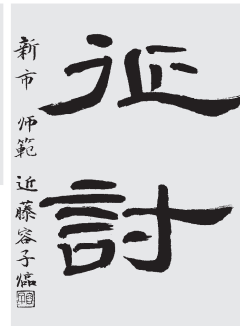 征討
新市 师範 近藤容子